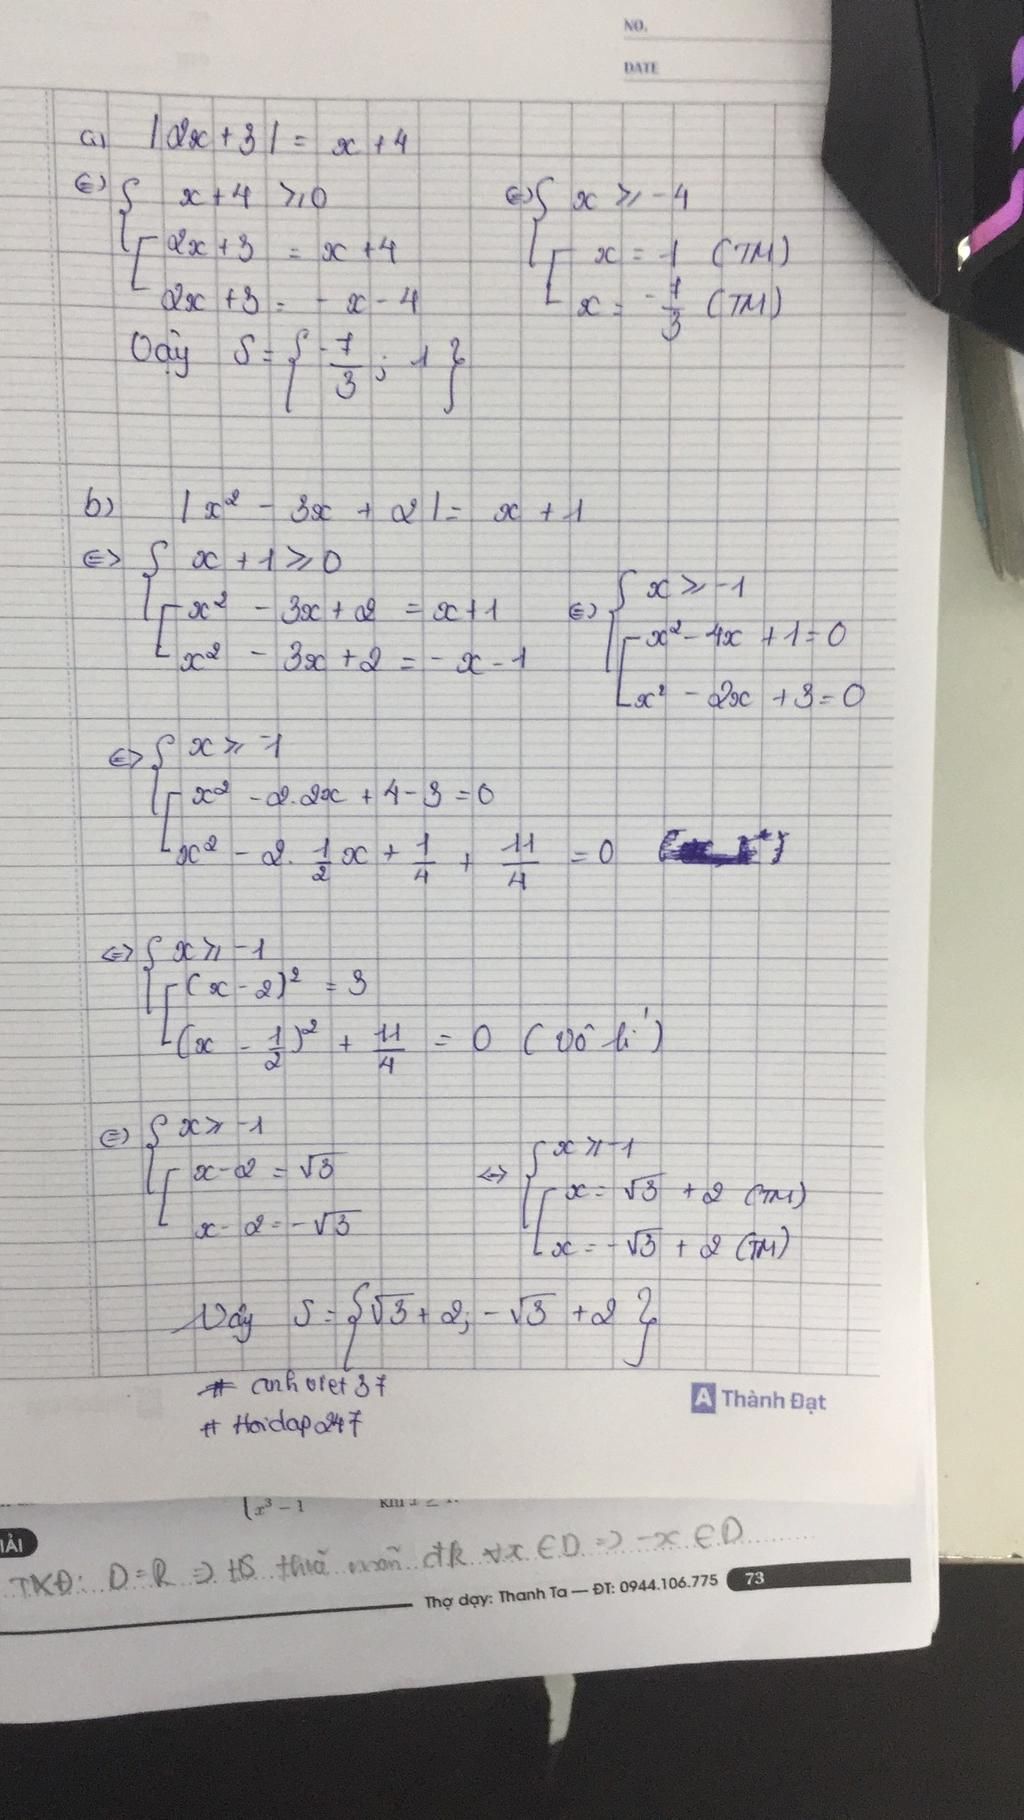 NO.
DATE
a) |2x+3| = x+4
⇔ { x+4 ≥ 0 ⇔ { x ≥ -4
[ 2x+3 = x+4 [ x = 1 (TM)
2x+3 = -x-4 x = -7/3 (TM)
Vậy S = { -7/3 ; 1 }
b) |x² - 3x + 2| = x + 1
⇔ { x + 1 ≥ 0 ⇔ { x ≥ -1
[ x² - 3x + 2 = x+1 [ x² - 4x + 1 = 0
x² - 3x + 2 = -x-1 x² - 2x + 3 = 0
⇔ { x ≥ -1
[ x² - 2.2x + 4-3 = 0
x² - 2. 1/2 x + 1/4 + 11/4 = 0
⇔ { x ≥ -1
[ (x-2)² = 3
(x - 1/2)² + 11/4 = 0 (Vô lí)
⇔ { x ≥ -1 ⇔ { x ≥ -1
[ x-2 = √3 [ x = √3 + 2 (TM)
x-2 = -√3 x = -√3 + 2 (TM)
Vậy S = { √3 + 2; -√3 + 2 }
# anhviet37
# Hoidap247
A Thành Đạt
x³ - 1
IẢI
TXĐ: D=R ⇒ HS thoả mãn đk ∀x ∈ D ⇒ -x ∈ D
Thợ dạy: Thanh Ta — ĐT: 0944.106.775 73